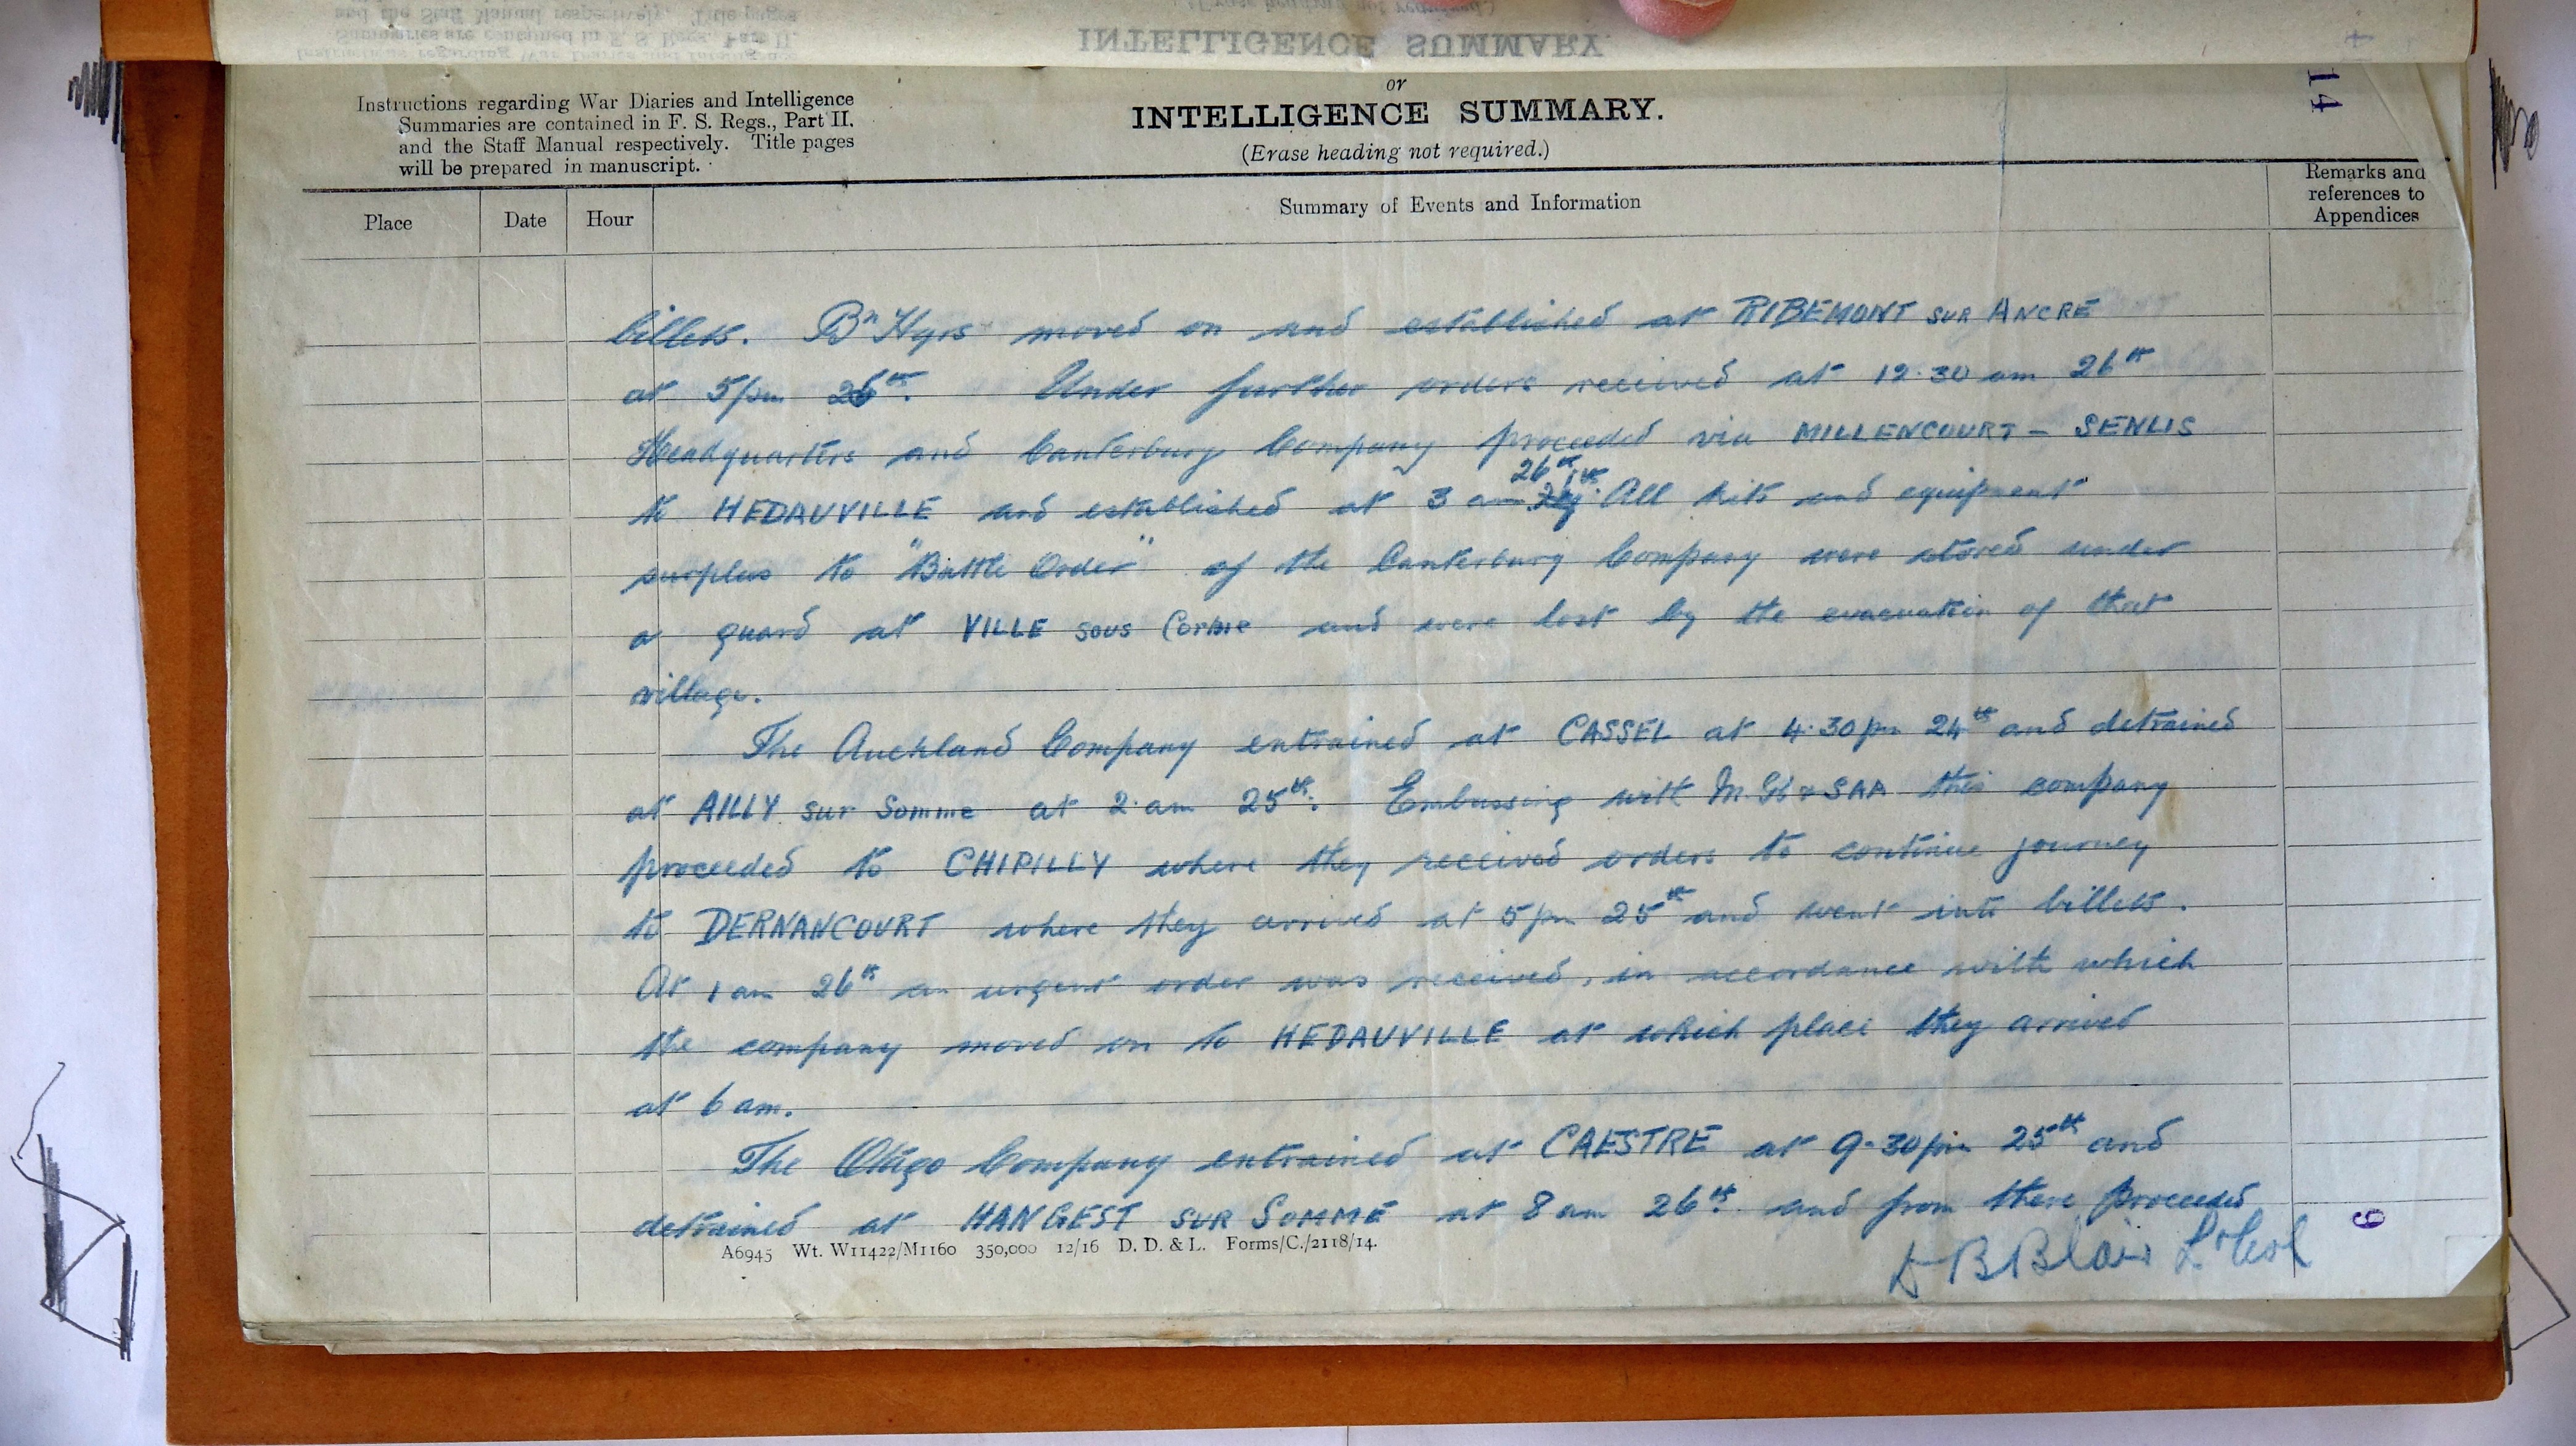 INTELLIGENCE SUMMARY.
Instructions regarding War Diaries and Intelligence
Summaries are contained in F. S. Regs., Part II.
and the Staff Manual respectively. Title pages
will be prepared in manuscript.
or
INTELLIGENCE SUMMARY.
(Erase heading not required.)
14
Place
Date
Hour
Summary of Events and Information
Remarks and
references to
Appendices
billets. Bn Hqrs moved on and established at RIBEMONT SUR ANCRE
at 5pm 25th. Under further orders received at 12.30 am 26th
Headquarters and Canterbury Company proceeded via MILLENCOURT - SENLIS
26th
to HEDAUVILLE and established at 3 am All kits and equipment
surplus to "Battle Order" of the Canterbury Company were stored under
a guard at VILLE sous Corbie and were lost by the evacuation of that
village.
The Auckland Company entrained at CASSEL at 4.30pm 24th and detrained
at AILLY sur Somme at 2 am 25th. Embussing with M.Gs & SAA this company
proceeded to CHIPILLY where they received orders to continue journey
to DERNANCOURT where they arrived at 5pm 25th and went into billets.
At 1 am 26th an urgent order was received, in accordance with which
the company moved on to HEDAUVILLE at which place they arrived
at 6 am.
The Otago Company entrained at CAESTRE at 9.30pm 25th and
detrained at HANGEST SUR SOMME at 8 am 26th. and from there proceeded
A6945 Wt. W11422/M1160 350,000 12/16 D. D. & L. Forms/C./2118/14.
D B Blair Lt Col
9